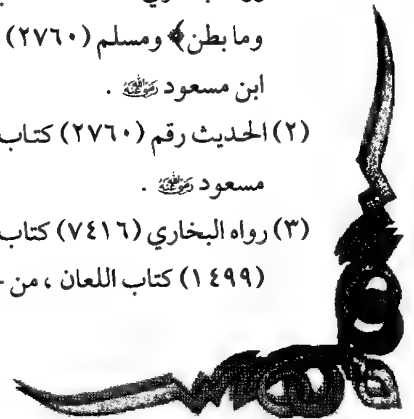 وما بطن﴾ ومسلم (٢٧٦٠)
ابن مسعود رضي الله عنه .
(٢) الحديث رقم (٢٧٦٠) كتاب
مسعود رضي الله عنه .
(٣) رواه البخاري (٧٤١٦) كتاب
(١٤٩٩) كتاب اللعان ، من